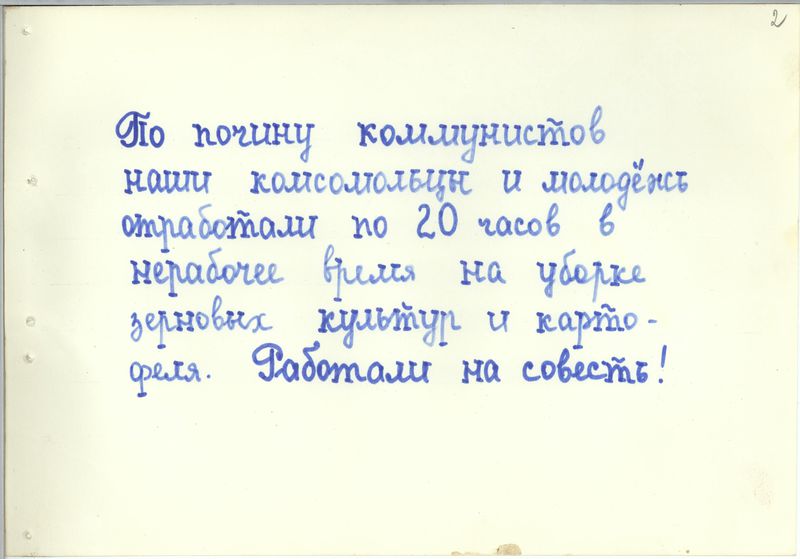 2
По почину коммунистов
наши комсомольцы и молодёжь
отработали по 20 часов в
нерабочее время на уборке
зерновых культур и карто-
феля. Работали на совесть!